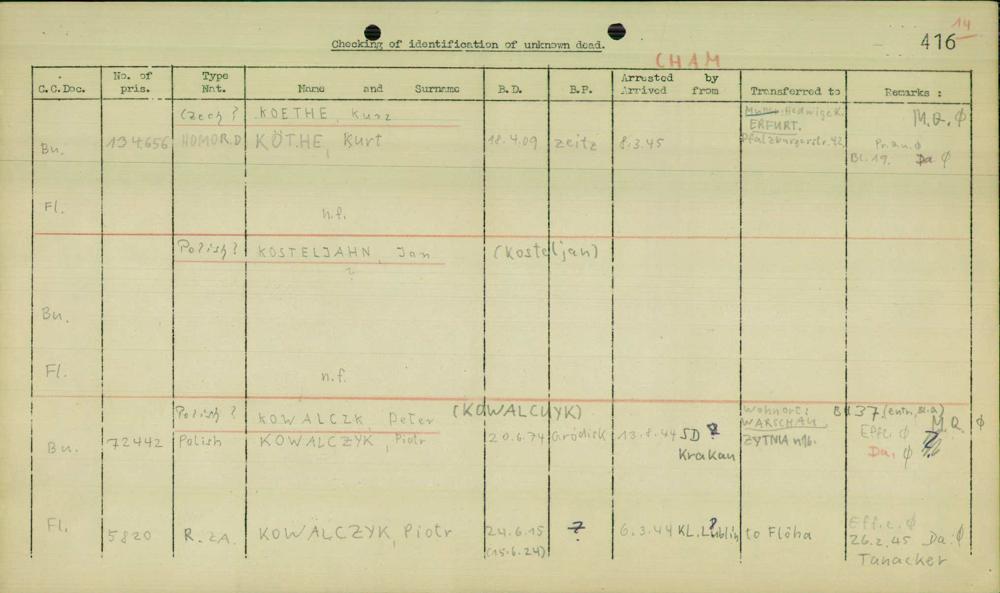 14
Checking of identification of unknown dead.
416
CHAM
C.C.Doc. No. of pris. Type Nat. Name and Surname B.D. B.P. Arrested Arrived by from Transferred to Remarks :
Czech ? KOETHE, Kurz Hedwige K. M.Q. Ø
ERFURT.
Bu. 134656 HOMOR.D KÖTHE, Kurt 18.4.09 Zeitz 8.3.45 Pfalzburgerstr. 42 Pr.an. Ø
Bl. 19. Da Ø
Fl. n.f.
Polish ? KOSTELJAHN, Jan (Kosteljan)
?
Bu.
Fl. n.f.
Polish ? KOWALCZK, Peter (KOWALCUYK) Wohnort: 37 (entn,
WARSCHAU. M.Q. Ø
Bu. 72442 Polish KOWALCZYK, Piotr 20.6.74 Gródisk 13.8.44 SD ? ZYTNIA Effc. Ø
Krakau Da, Ø
Fl. 5820 R.ZA. KOWALCZYK, Piotr 24.6.15 ? 6.3.44 KL. Lublin ? to Flöha Effc. Ø
(15.6.24) 26.2.45 Da: Ø
Tanacker